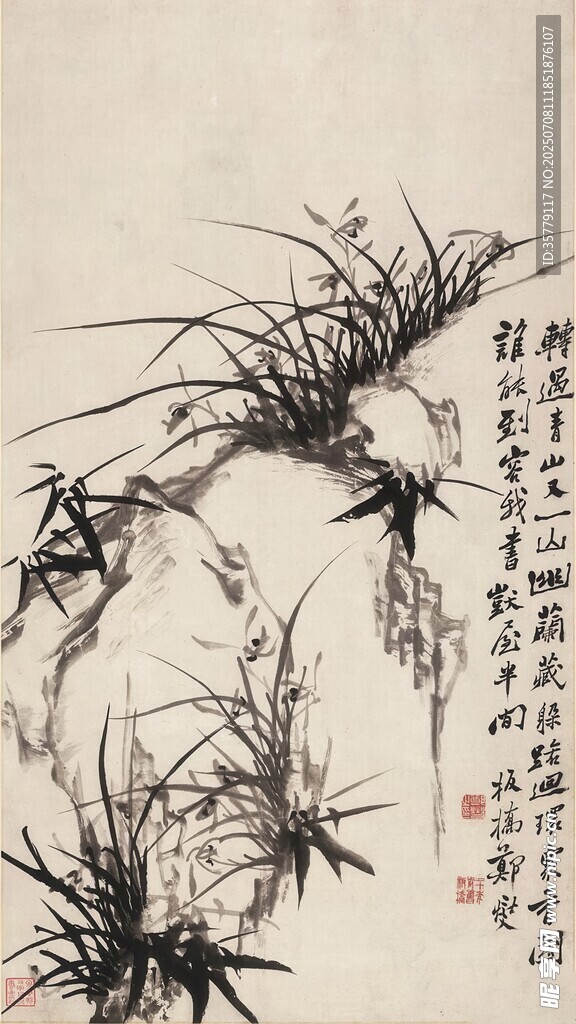 轉過青山又一山幽蘭藏躲路迴環
誰能到容我書獃屋半間
板橋鄭燮
ID:35779117 NO:20250708111851876107
昵享网 www.nipic.cn